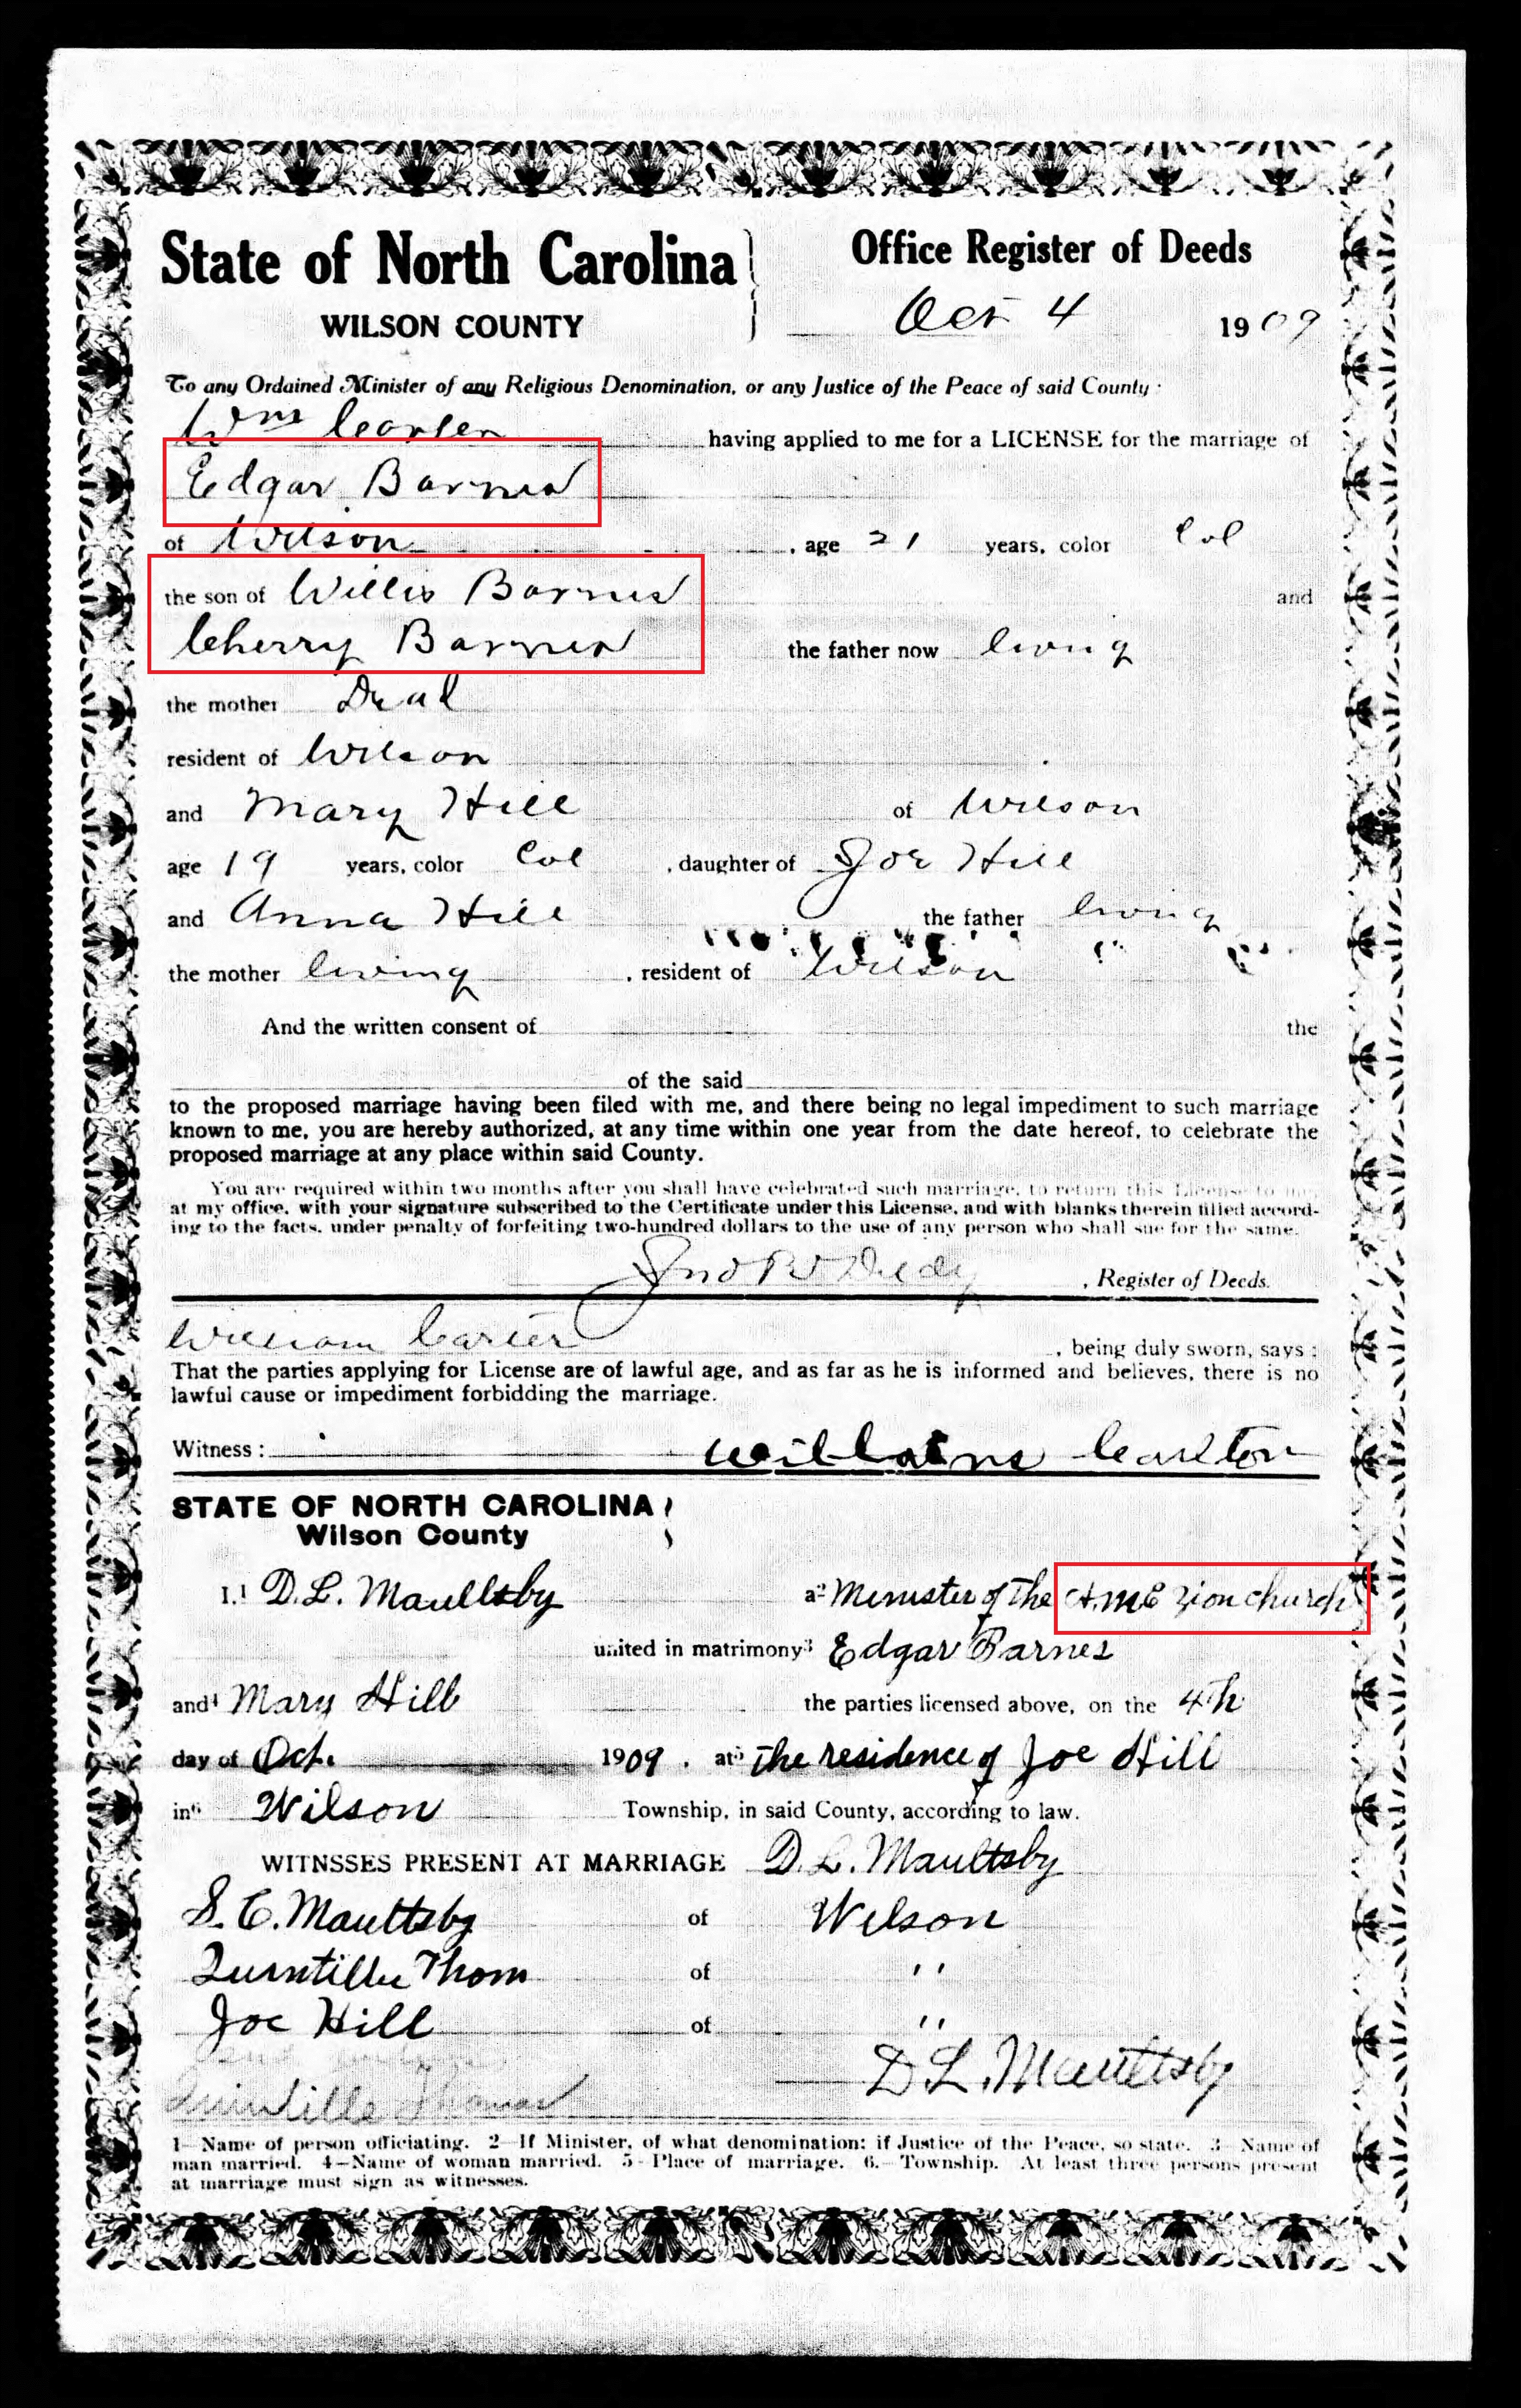 State of North Carolina
WILSON COUNTY
Office Register of Deeds
Oct 4 1909
To any Ordained Minister of any Religious Denomination, or any Justice of the Peace of said County:
Wm having applied to me for a LICENSE for the marriage of
Edgar Barnes
of Wilson, age 21 years, color Col
the son of Willis Barnes and
Cherry Barnes the father now living
the mother Dead
resident of Wilson
and Mary Hill of Wilson
age 19 years, color Col, daughter of Joe Hill
and Anna Hill the father living
the mother living, resident of Wilson
And the written consent of the
of the said
to the proposed marriage having been filed with me, and there being no legal impediment to such marriage
known to me, you are hereby authorized, at any time within one year from the date hereof, to celebrate the
proposed marriage at any place within said County.
You are required within two months after you shall have celebrated such marriage, to return this License to me,
at my office, with your signature subscribed to the Certificate under this License, and with blanks therein filled accord-
ing to the facts, under penalty of forfeiting two-hundred dollars to the use of any person who shall sue for the same.
, Register of Deeds.
William Carter, being duly sworn, says:
That the parties applying for License are of lawful age, and as far as he is informed and believes, there is no
lawful cause or impediment forbidding the marriage.
Witness:
STATE OF NORTH CAROLINA
Wilson County
I,1 D. L. Maultsby a2 Minister of the A.M.E Zion church
united in matrimony3 Edgar Barnes
and4 Mary Hill the parties licensed above, on the 4th
day of Oct. 1909, at5 The residence of Joe Hill
in6 Wilson Township, in said County, according to law.
WITNSSES PRESENT AT MARRIAGE D. L. Maultsby
S. C. Maultsby of Wilson
Quintillie Thom of ''
Joe Hill of ''
D L. Maultsby
Thomas
1—Name of person officiating. 2—If Minister, of what denomination; if Justice of the Peace, so state. 3—Name of
man married. 4—Name of woman married. 5—Place of marriage. 6.—Township. At least three persons present
at marriage must sign as witnesses.